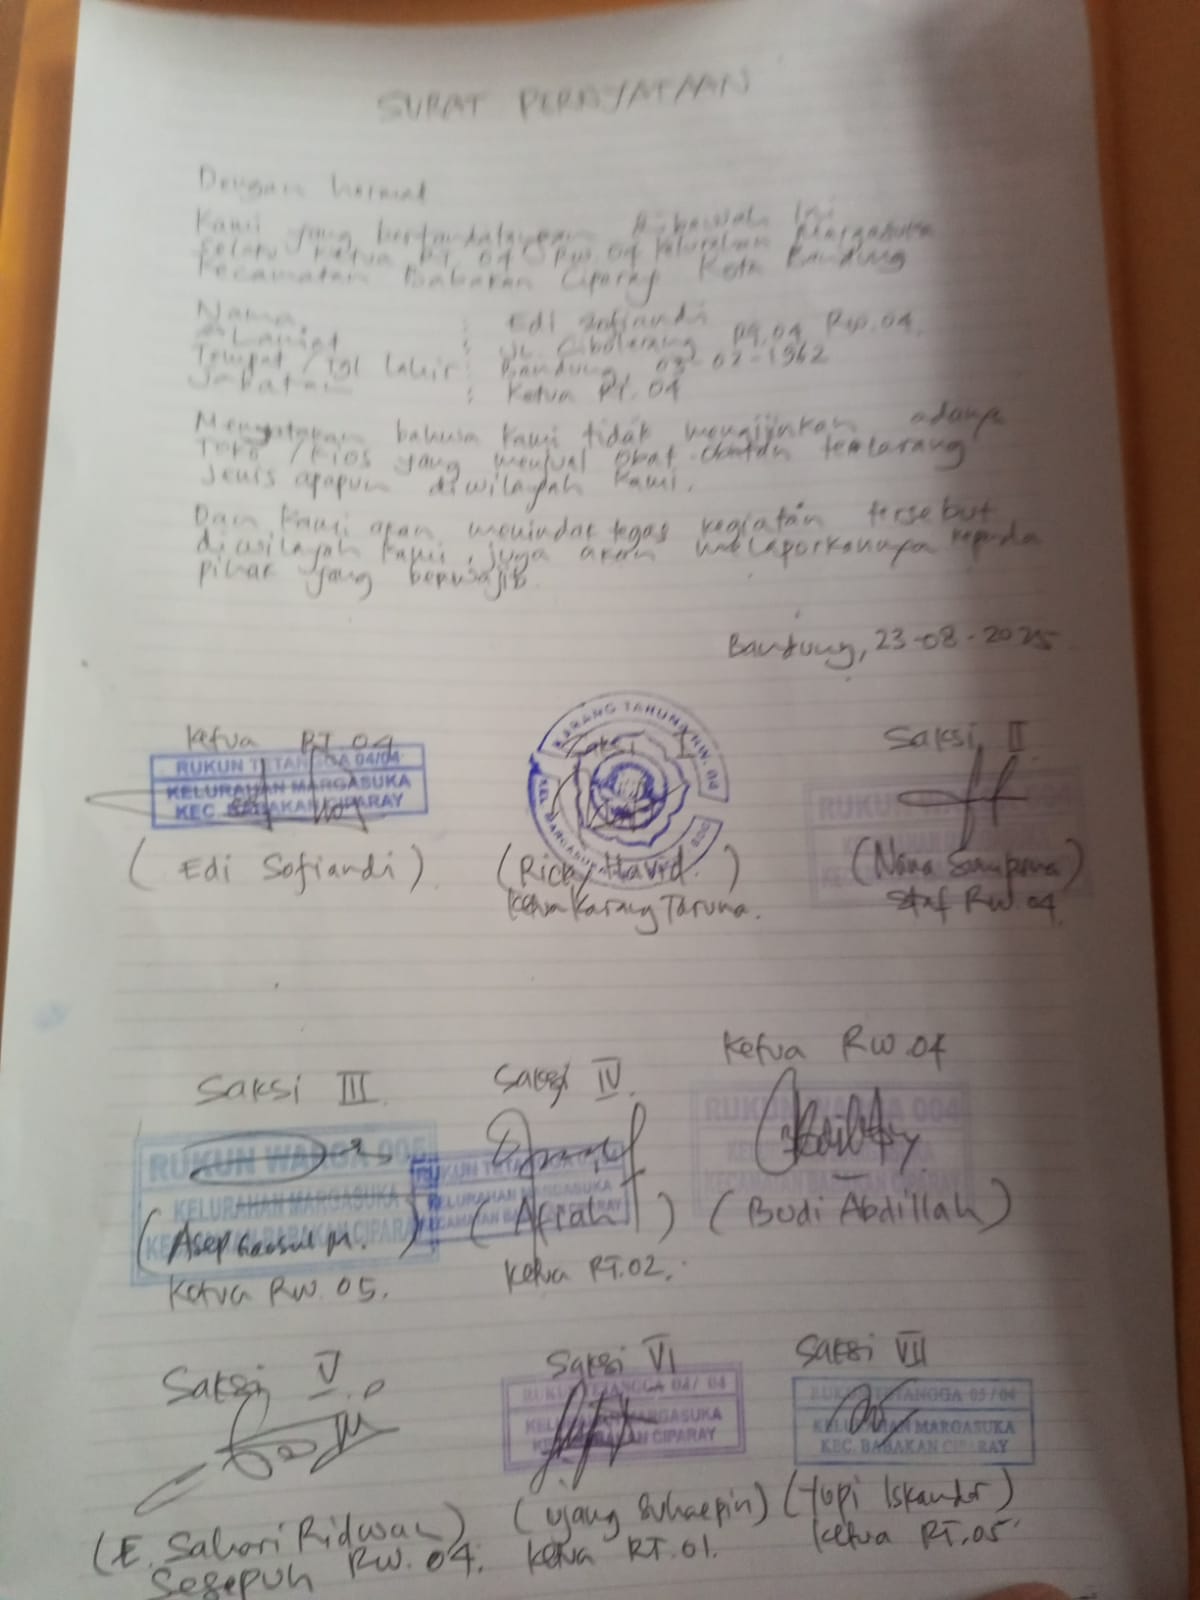 SURAT PERNYATAAN
Dengan hormat
Kami yang bertandatangan dibawah ini
Selaku Ketua RT. 04 Rw. 04 Kelurahan Margasuka
Kecamatan Babakan Ciparay Kota Bandung
Nama : Edi Sofiandi
Alamat : JL. Cibolerang Rt.04 Rw.04.
Tempat/Tgl Lahir : Bandung, 03-02-1962
Jabatan : Ketua RT. 04
Menyatakan bahwa Kami tidak mengijinkan adanya
Toko/Kios yang menjual obat-obatan terlarang
Jenis apapun diwilayah Kami.
Dan Kami akan menindak tegas kegiatan tersebut
diwilayah Kami, juga akan melaporkannya kepada
Pihak yang berwajib
Bandung, 23-08-2025
Ketua RT 04
RUKUN TETANGGA 04/04
KELURAHAN MARGASUKA
KEC. BABAKAN CIPARAY
(Edi Sofiandi)
KARANG TARUNA RW. 04
Saksi I
(Ricky Havid)
Ketua Karang Taruna.
Saksi II
RUKUN
(Nana Sampana)
Staf RW.04
Saksi III
RUKUN WARGA 005
KELURAHAN MARGASUKA
BABAKAN CIPARAY
(Asep M.)
Ketua RW. 05.
Saksi IV.
RUKUN
KELURAHAN MARGASUKA
KECAMATAN BABAKAN CIPARAY
(Afrah)
Ketua RT.02.
Ketua RW.04
RUKUN WARGA 004
(Budi Abdillah)
Saksi V
(E. Sahari Ridwan)
Sesepuh RW. 04.
Saksi VI
RUKUN TETANGGA
KELURAHAN MARGASUKA
KEC. BABAKAN CIPARAY
(Ujang Suhaepin)
Ketua RT.01.
Saksi VII
RUKUN TETANGGA 05/04
KELURAHAN MARGASUKA
KEC. BABAKAN CIPARAY
(Yopi Iskandar)
Ketua RT.05